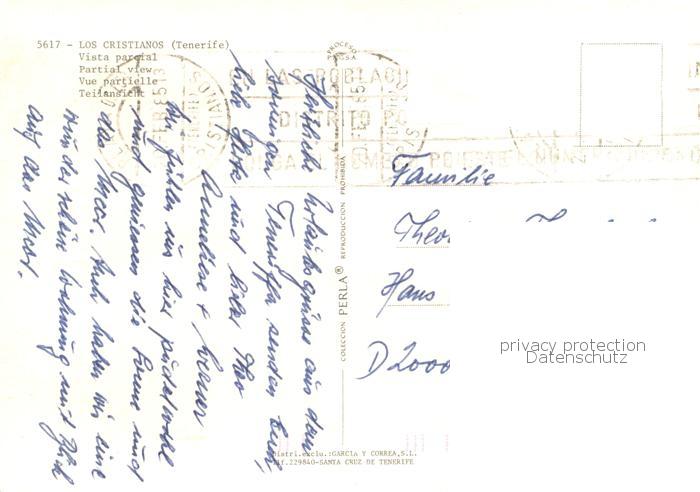 5617 - LOS CRISTIANOS (Tenerife)
Vista parcial
Partial view
Vue partielle
Teilansicht
PROCESO
FEB 85
DISTRITO PO
Herzliche Urlaubsgrüsse aus dem
sonnigen Teneriffa senden Euch
liebe und lieber Theo
Anneliese + Werner
Wir fühlen uns hier pudelwohl
und geniessen die Sonne und
das Meer. Auch haben wir eine
wunderschöne Wohnung mit Blick
auf das Meer.
COLECCION PERLA® REPRODUCCION PROHIBIDA
Familie
Theo
Hans
D 2000
privacy protection
Datenschutz
Distri.exclu.:GARCIA Y CORREA,S.L.
Tlf.229840-SANTA CRUZ DE TENERIFE